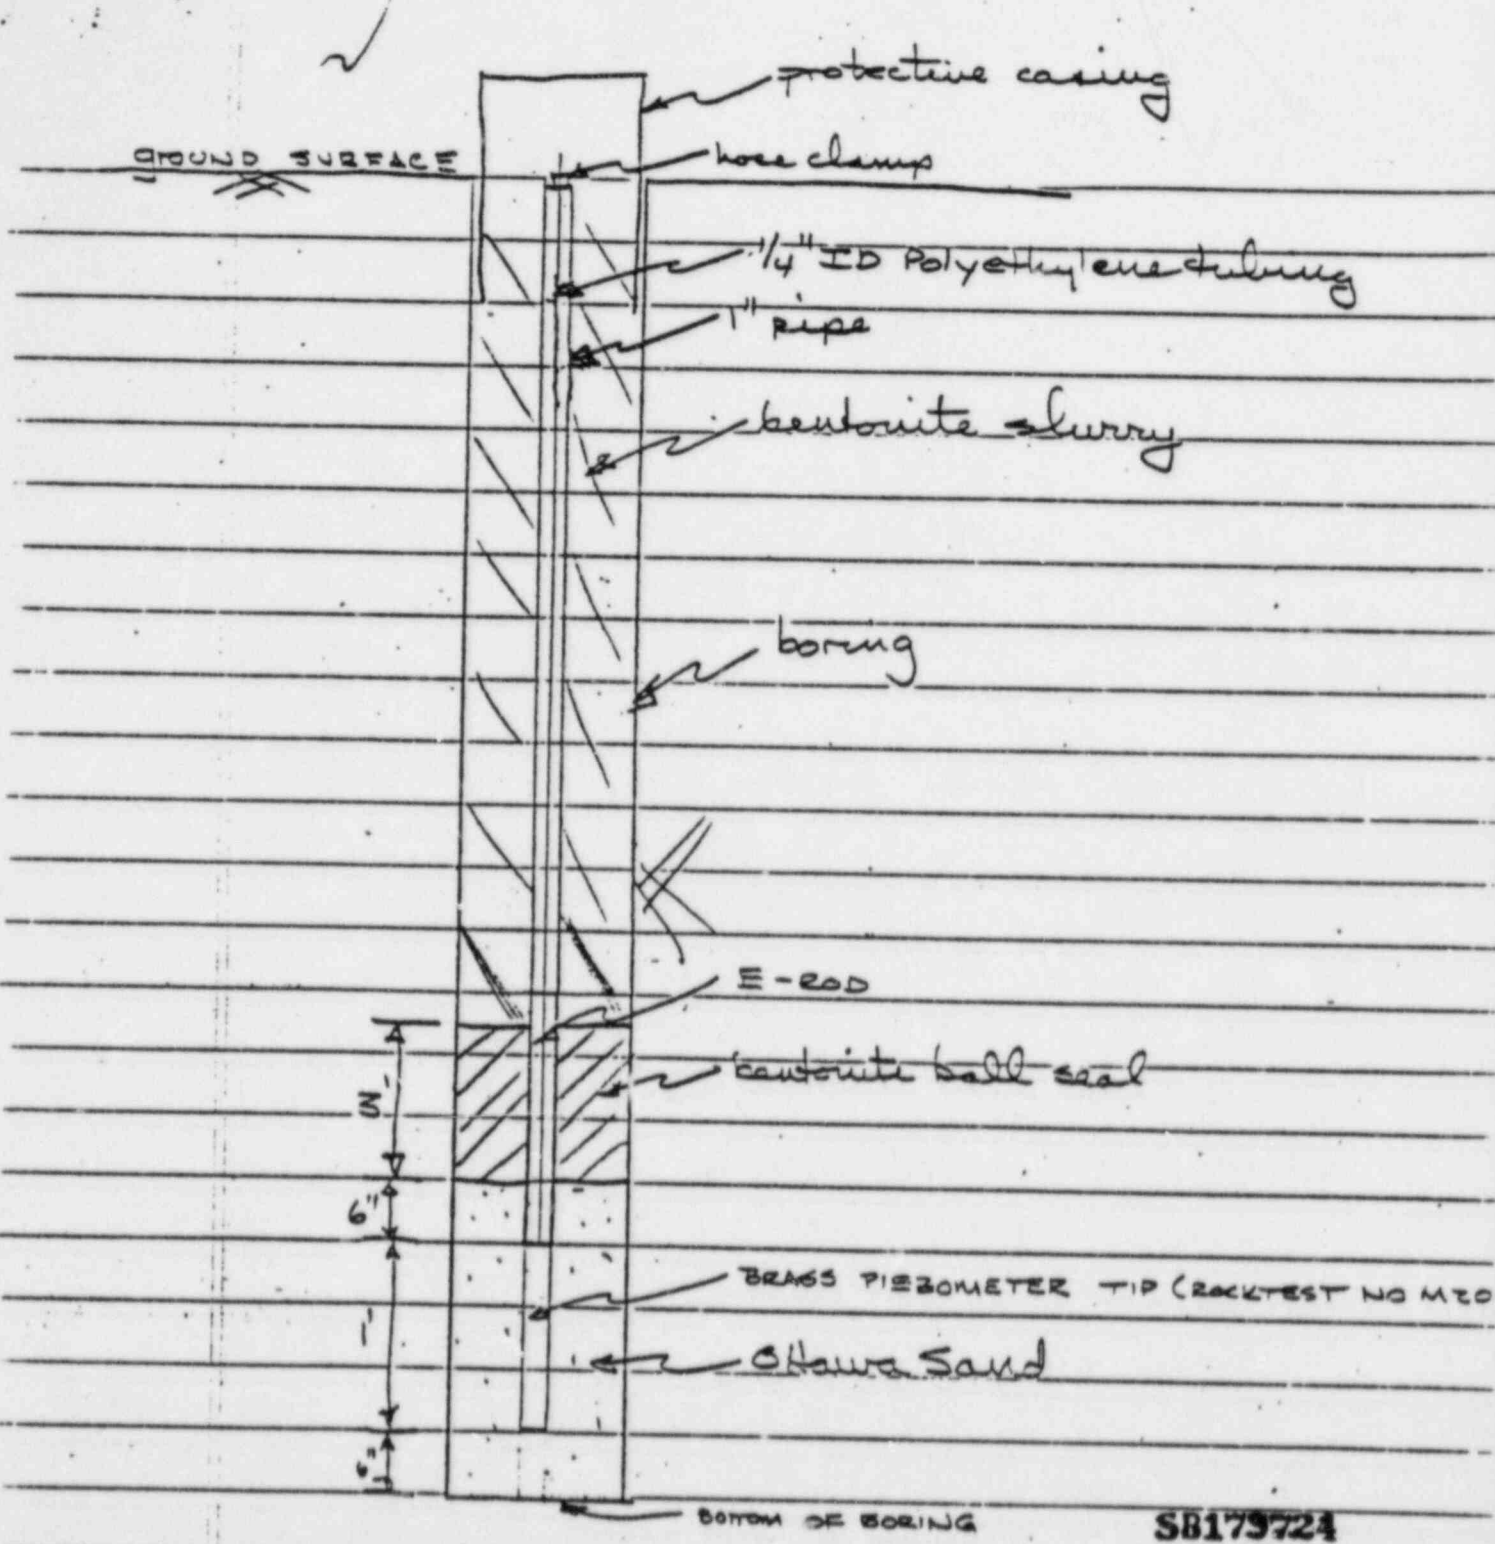 protective casing
GROUND SURFACE
hose clamp
1/4" ID Polyethylene tubing
1" pipe
bentonite slurry
boring
E-ROD
bentonite ball seal
6"
BRASS PIEZOMETER TIP (ROCKTEST NO M20
1'
Ottawa Sand
6"
BOTTOM OF BORING
SB179724